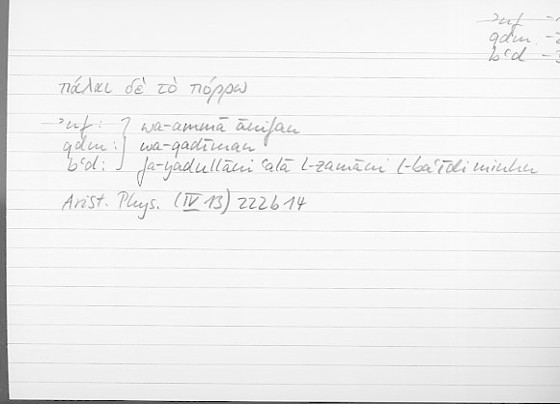 ʾnf -1
qdm -2
bʿd -3
πάλαι δὲ τὸ πόρρω
ʾnf: wa-ammā ānifan
qdm: wa-qadīman
bʿd: fa-yadullāni ʿalā l-zamāni l-baʿīdi minhu
Arist. Phys. (IV 13) 222b14